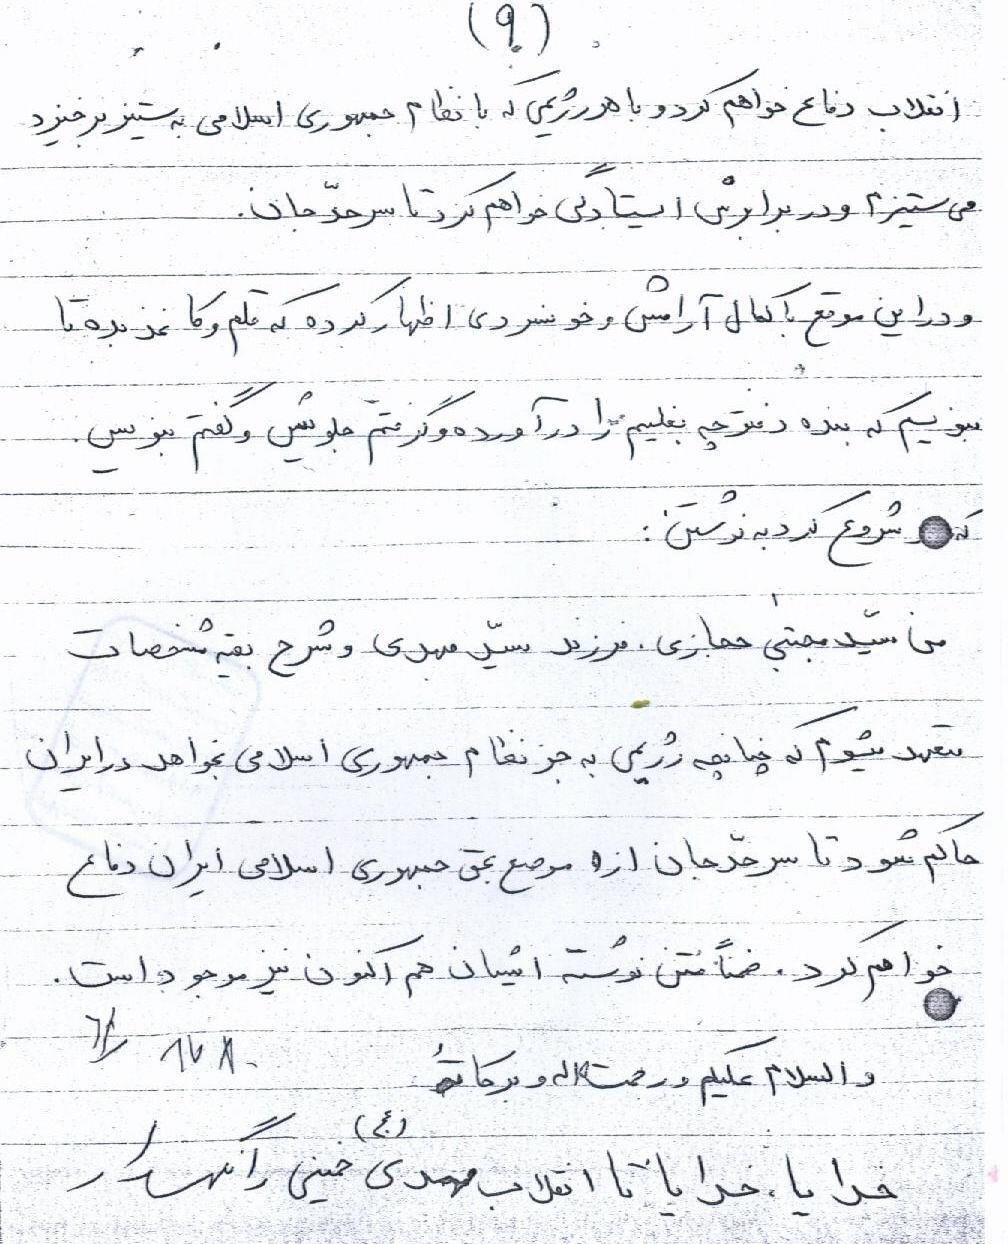 (۹)
انقلاب دفاع خواهم کرد و با هر رژیمی که با نظام جمهوری اسلامی به ستیز برخیزد
می ستیزم و در برابرش ایستادگی خواهم کرد تا سر حدّ جان.
و در این موقع با کمال آرامش و خونسردی اظهار کرده که قلم و کاغذ بده تا
بنویسم که بنده دفترچه بغلیم را در آورده و گرفتم جلویش و گفتم بنویس.
که شروع کرد به نوشتن:
من سیّد مجتبی حجازی. فرزند سیّد مهدی و شرح بقیه مشخصات
متعهد میشوم که چنانچه رژیمی به جز نظام جمهوری اسلامی بخواهد در ایران
حاکم شود تا سر حدّ جان از موضع بحق جمهوری اسلامی ایران دفاع
خواهم کرد. ضمناً متن نوشته ایشان هم اکنون نیز موجود است.
والسلام علیکم و رحمت اله و برکاته
خدایا، خدایا تا انقلاب مهدی (عج) خمینی را نگهدار